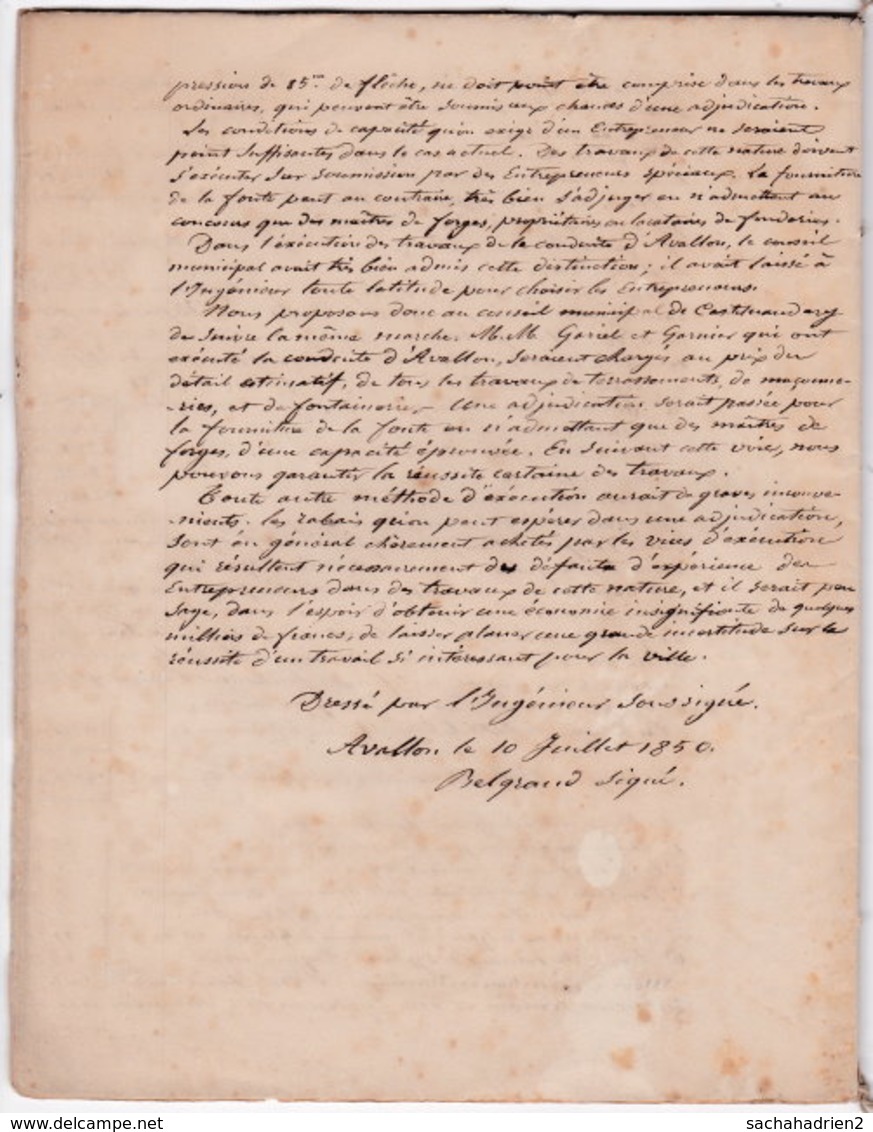 pression de 85m. de flèche, ne doit point être comprise dans les travaux
ordinaires, qui peuvent être soumis aux chances d'une adjudication.
Les conditions de capacité qu'on exige d'un Entrepreneur ne seraient
point suffisantes dans le cas actuel. Des travaux de cette nature doivent
s'exécuter sur soumission par des Entrepreneurs spéciaux. La fourniture
de la fonte peut au contraire, très bien s'adjuger en n'admettant au
concours que des maîtres de forges, propriétaires ou locataires de fonderies.
Dans l'exécution des travaux de la conduite d'Avallon, le conseil
municipal avait très bien admis cette distinction ; il avait laissé à
l'Ingénieur toute latitude pour choisir les Entrepreneurs.
Nous proposons donc au conseil municipal de Castelnaudary
de suivre la même marche. M.M. Gariel et Garnier qui ont
exécuté la conduite d'Avallon, seraient chargés au prix du
détail estimatif, de tous les travaux de terrassements, de maçonne-
-ries, et de fontainerie. Une adjudication serait passée pour
la fourniture de la fonte en n'admettant que des maîtres de
forges, d'une capacité éprouvée. En suivant cette voie, nous
pouvons garantir la réussite certaine des travaux.
Toute autre méthode d'exécution aurait de graves inconve-
-nients. Les rabais qu'on peut espérer dans une adjudication,
sont en général chèrement achetés par les vices d'exécution
qui résultent nécessairement des défauts d'expérience des
Entrepreneurs dans des travaux de cette nature, et il serait peu
sage, dans l'espoir d'obtenir une économie insignifiante de quelques
milliers de francs, de laisser planer une grande incertitude sur la
réussite d'un travail si intéressant pour la ville.
Dressé par l'Ingénieur soussigné.
Avallon le 10 Juillet 1850.
Belgrand signé.
sachahadrien2